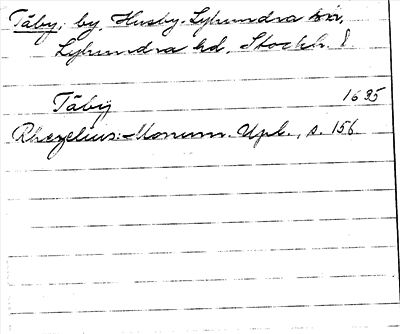 Täby, by, Husby-Lyhundra sn,
Lyhundra hd, Stockh. l.
Täby 1635
Rhezelius: Monum. Upl., s. 156